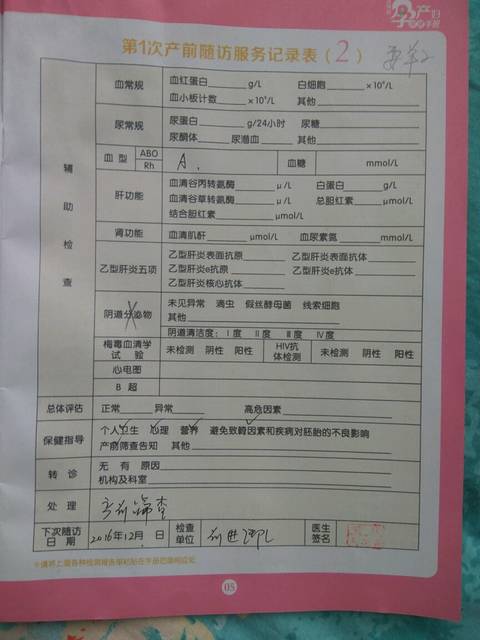 孕产妇
第1次产前随访服务记录表（2）
辅助检查
血常规 血红蛋白 g/L 白细胞 ×10⁹/L
血小板计数 ×10⁹/L 其他
尿常规 尿蛋白 g/24小时 尿糖
尿酮体 尿潜血 其他
血型 ABO A. 血糖 mmol/L
Rh
肝功能 血清谷丙转氨酶 μ/L 白蛋白 g/L
血清谷草转氨酶 μ/L 总胆红素 μmol/L
结合胆红素 μmol/L
肾功能 血清肌酐 μmol/L 血尿素氮 mmol/L
乙型肝炎五项 乙型肝炎表面抗原 乙型肝炎表面抗体
乙型肝炎e抗原 乙型肝炎e抗体
乙型肝炎核心抗体
阴道分泌物 未见异常 滴虫 假丝酵母菌 线索细胞
其他
阴道清洁度：Ⅰ度 Ⅱ度 Ⅲ度 Ⅳ度
梅毒血清学试验 未检测 阴性 阳性 HIV抗体检测 未检测 阴性 阳性
心电图
B 超
总体评估 正常 异常 高危因素
保健指导 个人卫生 心理 营养 避免致畸因素和疾病对胚胎的不良影响
产前筛查告知 其他
转诊 无 有 原因
机构及科室
处理 产前筛查
下次随访日期 2016年12月 日 检查单位 前进 医生签名
05